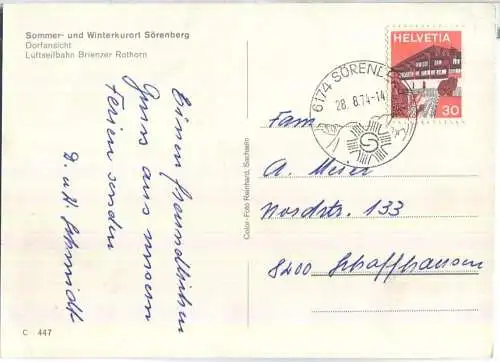 Sommer- und Winterkurort Sörenberg
Dorfansicht
Luftseilbahn Brienzer Rothorn
Einen freundlichen
Gruss aus unsern
Ferien senden
D. u. H. Schmidt
C 447
Color-Foto Reinhard, Sachseln
HELVETIA
30
6174 SÖREN
28. 8.74-14
Fam.
A. Meier
Nordstr. 133
8200 Schaffhausen